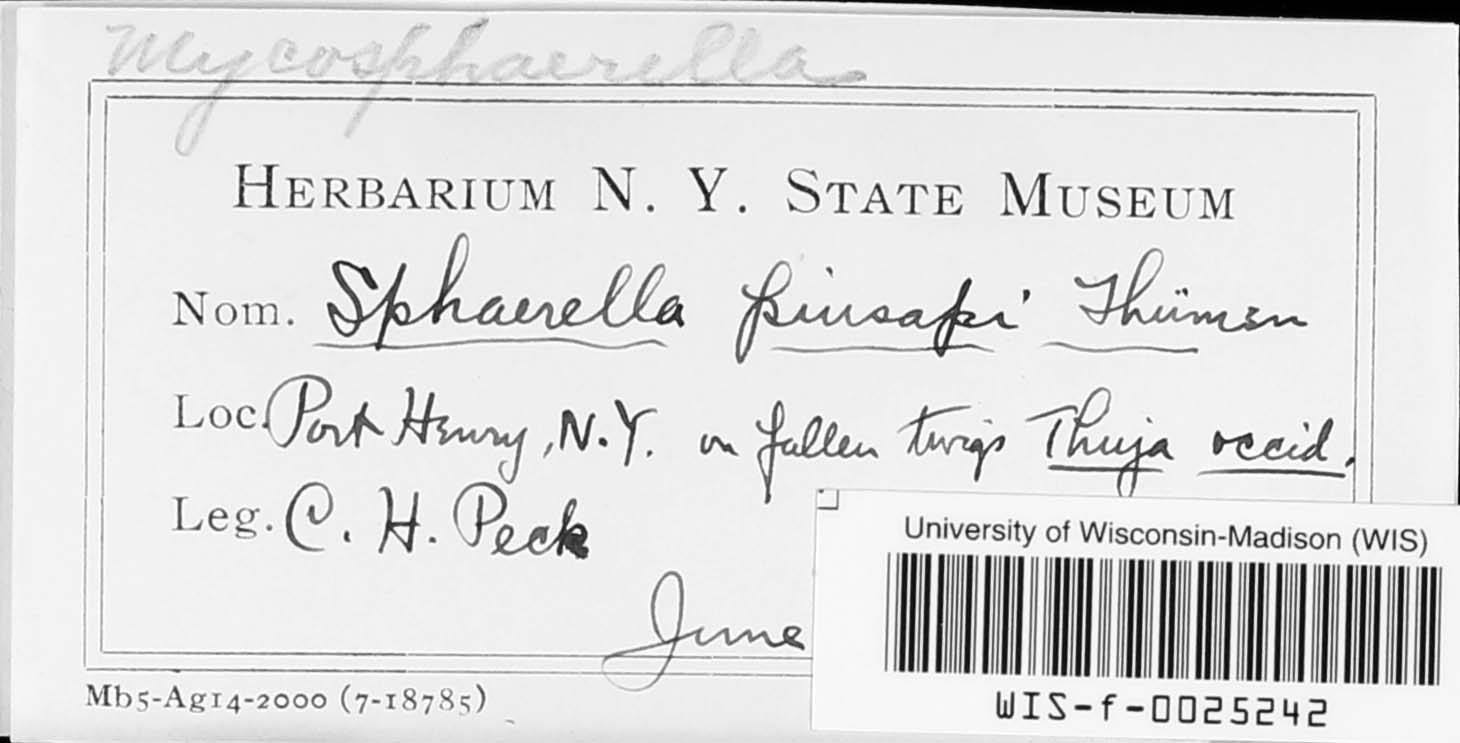 Mycosphaerella
HERBARIUM N. Y. STATE MUSEUM
Nom. Sphaerella pinsapi Thümen
Loc. Port Henry, N.Y. on fallen twigs Thuja occid.
Leg. C. H. Peck
June
Mb5-Ag14-2000 (7-18785)
University of Wisconsin-Madison (WIS)
WIS-f-0025242